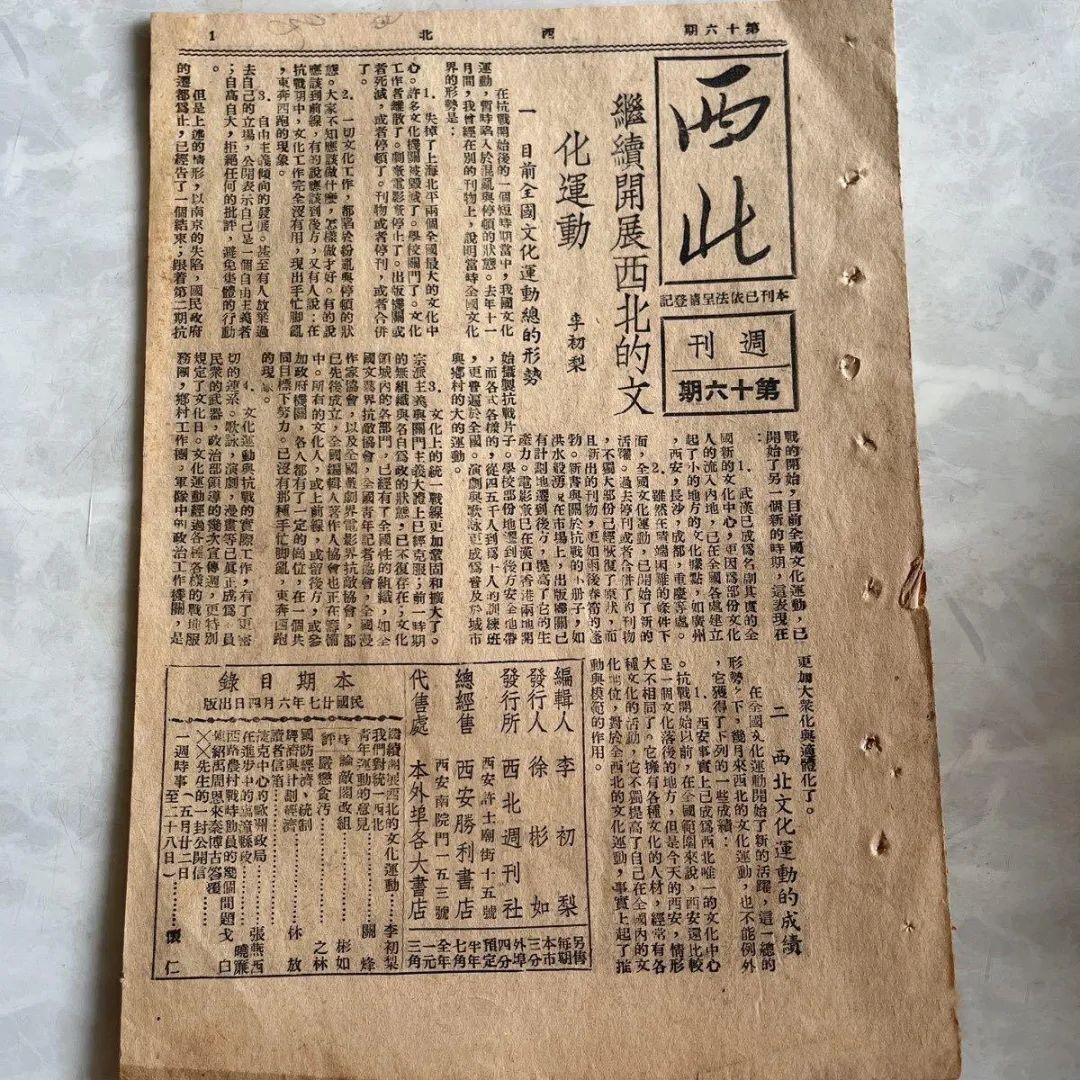 第十六期
西北
1
西北
本刊已依法呈請登記
週刊
第十六期
繼續開展西北的文
化運動
李初梨
一 目前全國文化運動總的形勢
在抗戰開始後的一個短時期當中，我國文化
運動，暫時陷入於混亂與停頓的狀態。去年十一
月間，我曾經在別的刊物上，說明當時全國文化
界的形勢是：
1. 失掉了上海北平兩個全國最大的文化中
心。許多文化機關被毀滅了。學校關門了。文化
工作者離散了。劇業電影業停止了。出版機關或
者死滅，或者停頓了。刊物或者停刊，或者合併
了。
2. 一切文化工作，都陷於紛亂與停頓的狀
態。大家不知應該做什麼，怎樣做才好。有的說
應該到前線，有的說應該到後方，又有人說：在
抗戰期中，文化工作完全沒有用，現出手忙脚亂
，東奔西跑的現象。
3. 自由主義傾向的發展。甚至有人放棄過
去自己的立場，公開表示自己是一個自由主義者
；自高自大，拒絕任何的批評，避免集體的行動
。
但是上述的情形，以南京的失陷，國民政府
的遷都爲止，已經告了一個結束；跟着第二期抗
戰的開始，目前全國文化運動，已
開始了另一個新的時期，這表現在
：
1. 武漢已成爲名副其實的全
國新的文化中心，更因爲部份文化
人的流入內地，已在全國各處建立
起了小的地方的文化據點，如廣州
，西安，長沙，成都，重慶等處。
2. 雖然在諸端困難的條件下
面，全國文化運動，已開始了新的
活躍。過去停刊或者合併了的刊物
，不獨大部份已經恢復了原狀，而
且新出的刊物，更如雨後春筍的蓬
勃。新書與關於抗戰的小册子，如
洪水般湧現在市場上，出版機關已
有計劃地遷到後方，提高了它的生
產力。電影業已在漢口香港兩地開
始攝製抗戰片子。學校部份地遷到後方安全地帶
，而各式各樣的，從四五千人到爲十人的訓練班
，更普遍於全國。演劇與歌咏更成爲普及於城市
與鄉村的大的運動。
3. 文化上的統一戰線更加鞏固和擴大了。
宗派主義與關門主義大體上已經克服；前一時期
的無組織與各自爲政的狀態，已不復存在；文化
領域內的各部門，已經有了全國性的組織，如全
國文藝界抗敵協會，全國青年記者協會，全國漫
作家協會，以及全國戲劇界電影界抗敵協會，都
已先後成立，全國編輯人著作人協會也正在籌備
中。所有的文化人，或上前線，或留後方，或參
加政府機關，各人都有了一定的崗位，在一個共
同目標下努力。已沒有那種手忙脚亂，東奔西跑
的現象。
4. 文化運動與抗戰的實際工作，有了更密
切的連系。歌咏，演劇，漫畫等已真正成爲動員
民衆的武器，政治部領導的幾次宣傳週，更特別
規定了文化日。文化運動經過各種各樣的戰地服
務團，鄉村工作團，軍隊中的政治工作機關，是
更加大衆化與適體化了。
二 西北文化運動的成績
在全國文化運動開始了新的活躍，這一總的
形勢之下，幾月來西北的文化運動，也不能例外
，它獲得了下列的一些成績：
1. 西安事實上已成爲西北唯一的文化中心
。抗戰開始以前，在全國範圍來說，西安還比較
是一個文化落後的地方，但是今天的西安，情形
大不相同了。它擁有各種文化的人材，經常有各
種文化的活動，它不獨提高了自己在全國內的文
化地位，對於全西北的文化運動，事實上起了推
動與模範的作用。
編輯人 李初梨
發行人 徐彬如
發行所 西北週刊社
西安許士廟街十五號
總經售 西安勝利書店
西安南院門一五三號
代售處 本外埠各大書店
另售 每期
本市三分
外埠四分
預定
半年七角
全年一元三角
本期目錄
民國廿七年六月四日出版
繼續開展西北的文化運動……李初梨
我們對統一西北
青年運動的意見……關烽
時評
論敵閣改組……彬如
嚴懲貪汚……之林
國防經濟、統制
經濟與計劃經濟……林放
讀者信箱
捷克中心的歐洲政局……張燕西
在進步中的臨潼縣政……曉簾
西路農村戰時動員的幾個問題 戈白
陳紹禹周恩來秦博古答覆
××先生的一封公開信
一週時事（五月廿二日
至二十八日）……懷仁